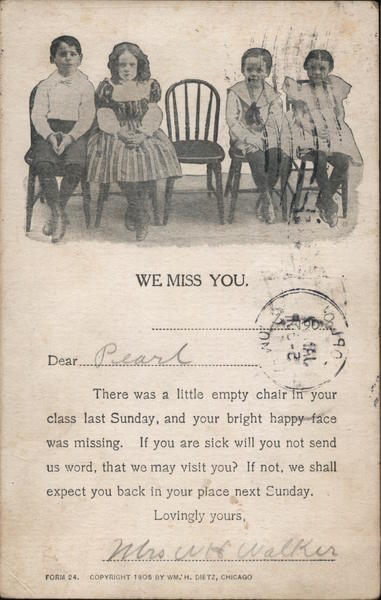 WE MISS YOU.
Dear Pearl
There was a little empty chair in your
class last Sunday, and your bright happy face
was missing. If you are sick will you not send
us word, that we may visit you? If not, we shall
expect you back in your place next Sunday.
Lovingly yours,
Mrs W H Walker
FORM 24. COPYRIGHT 1905 BY WM. H. DIETZ, CHICAGO